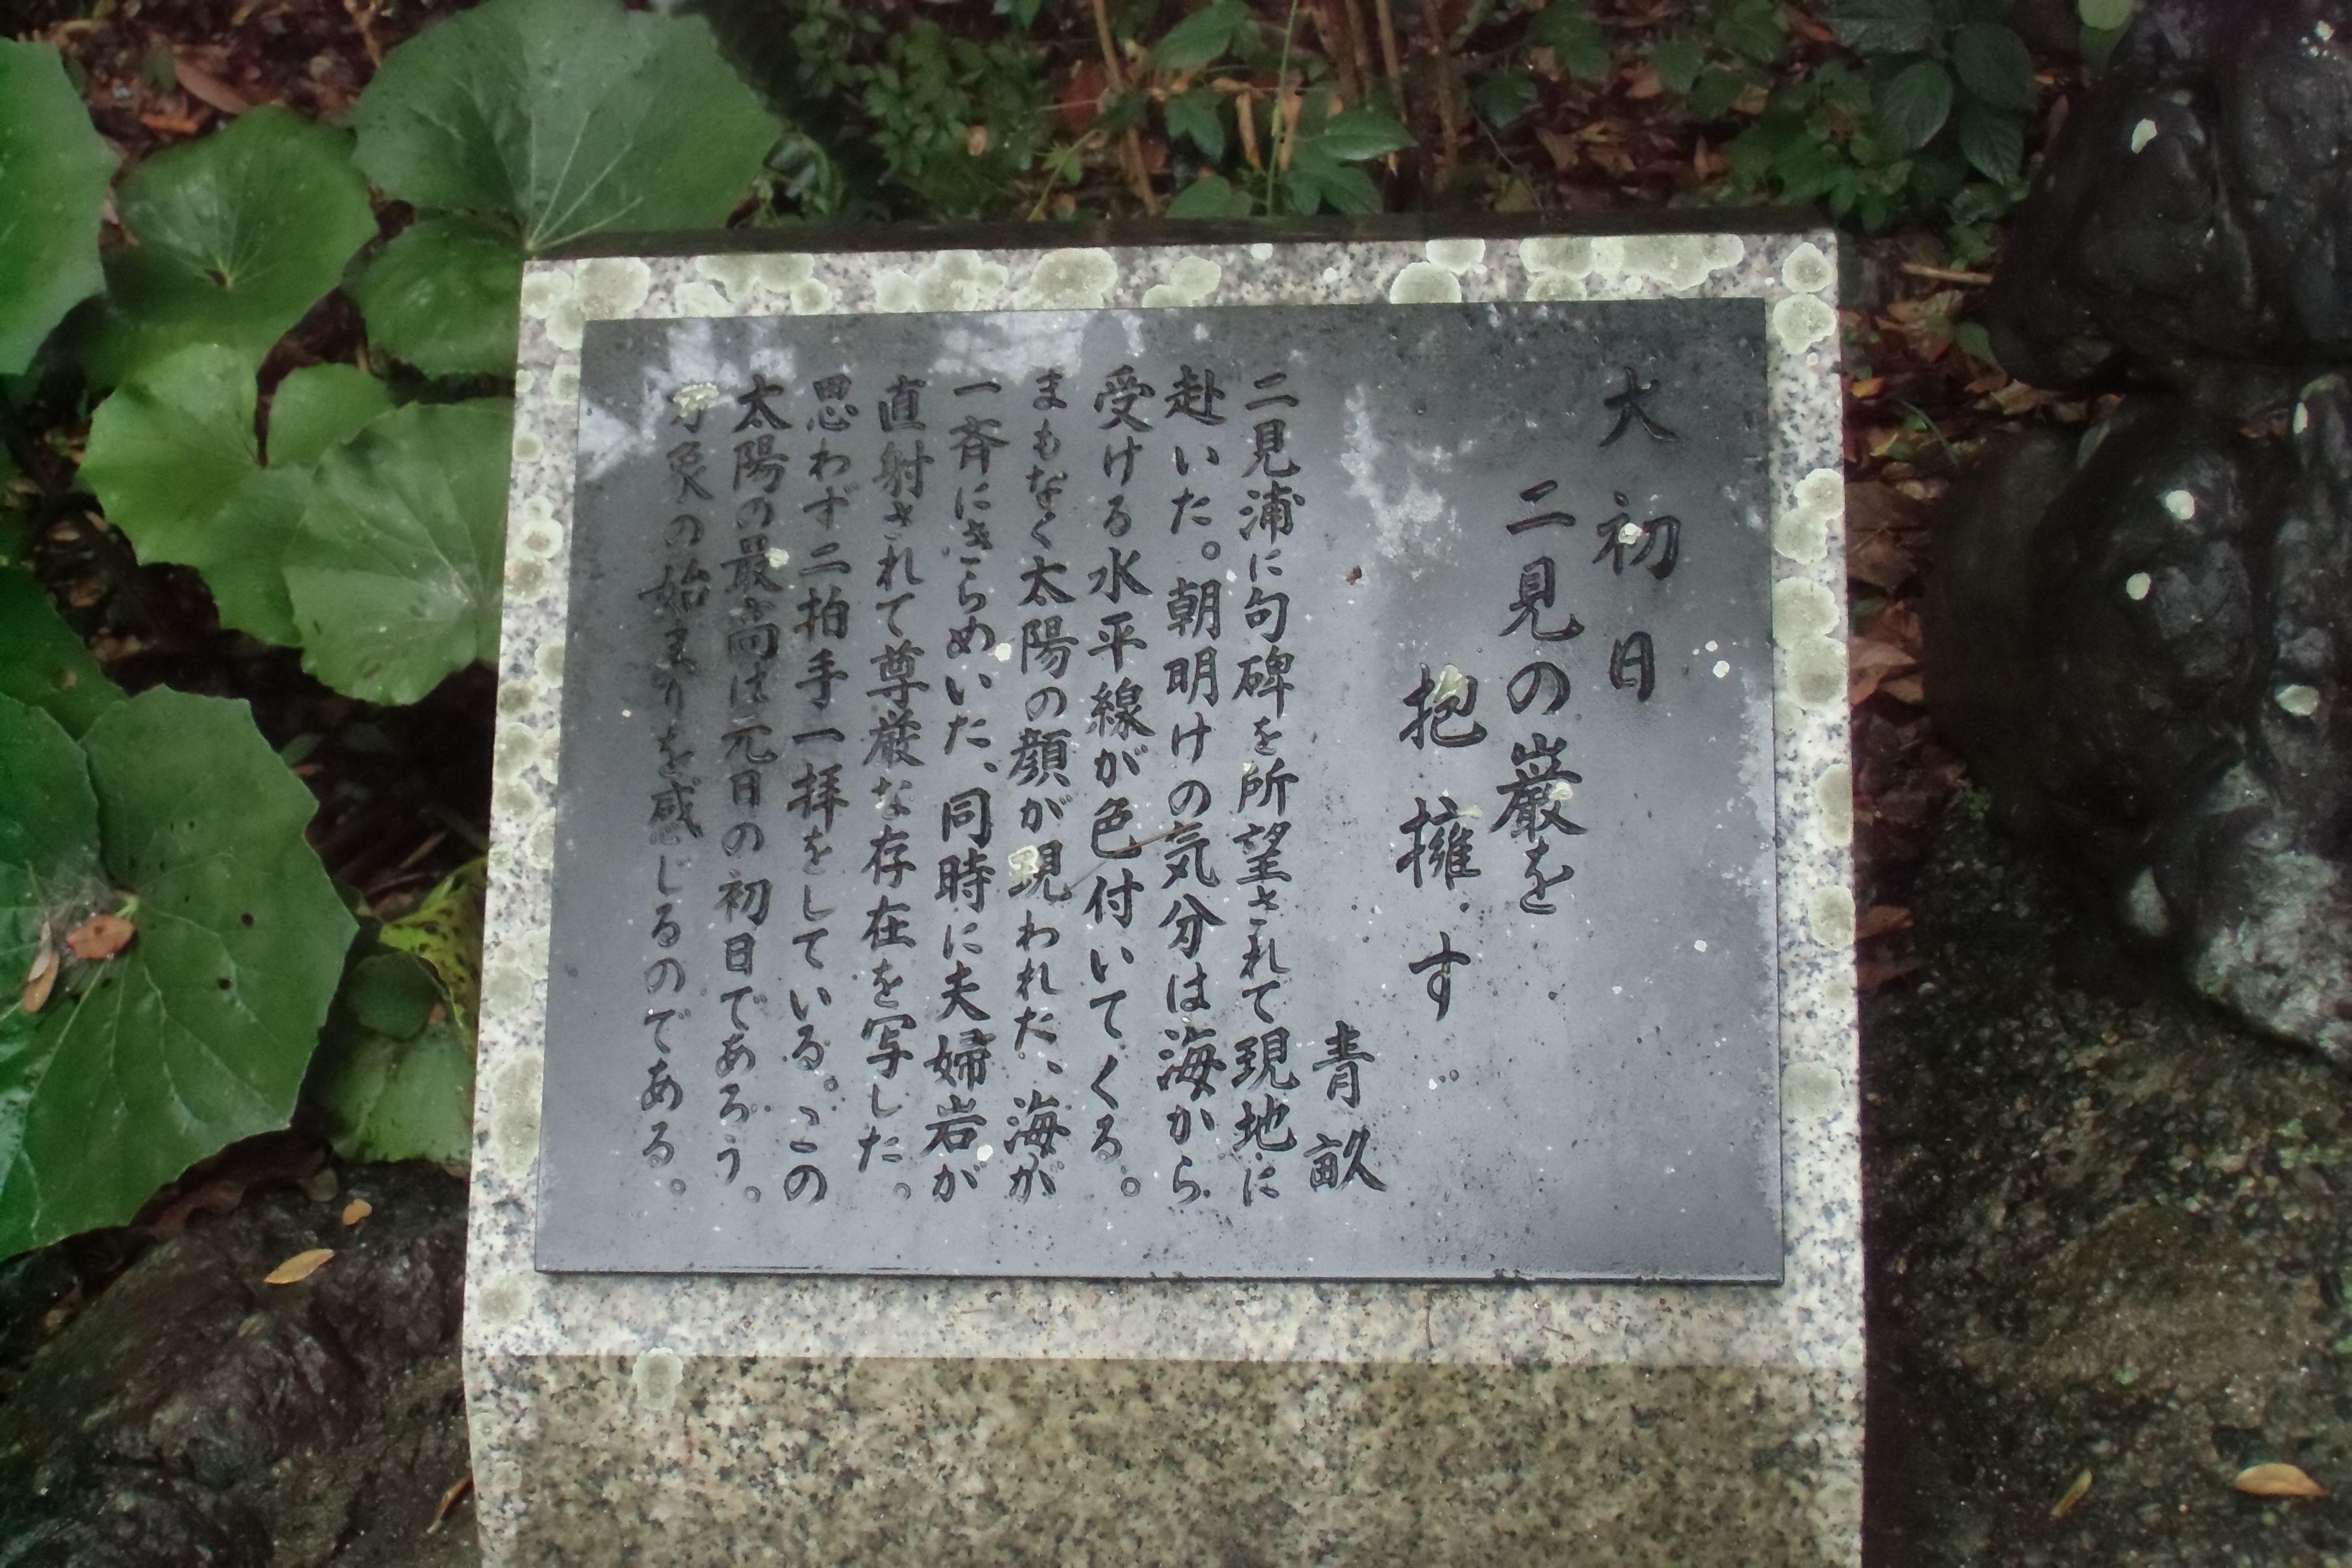 大初日
二見の巌を
抱擁す
青畝
二見浦に句碑を所望されて現地に
赴いた。朝明けの気分は海から
受ける水平線が色付いてくる。
まもなく太陽の顔が現われた、海が
一斉にきらめいた、同時に夫婦岩が
直射されて尊厳な存在を写した。
思わず二拍手一拝をしている。この
太陽の最高は元日の初日であろう。
万象の始まりを感じるのである。